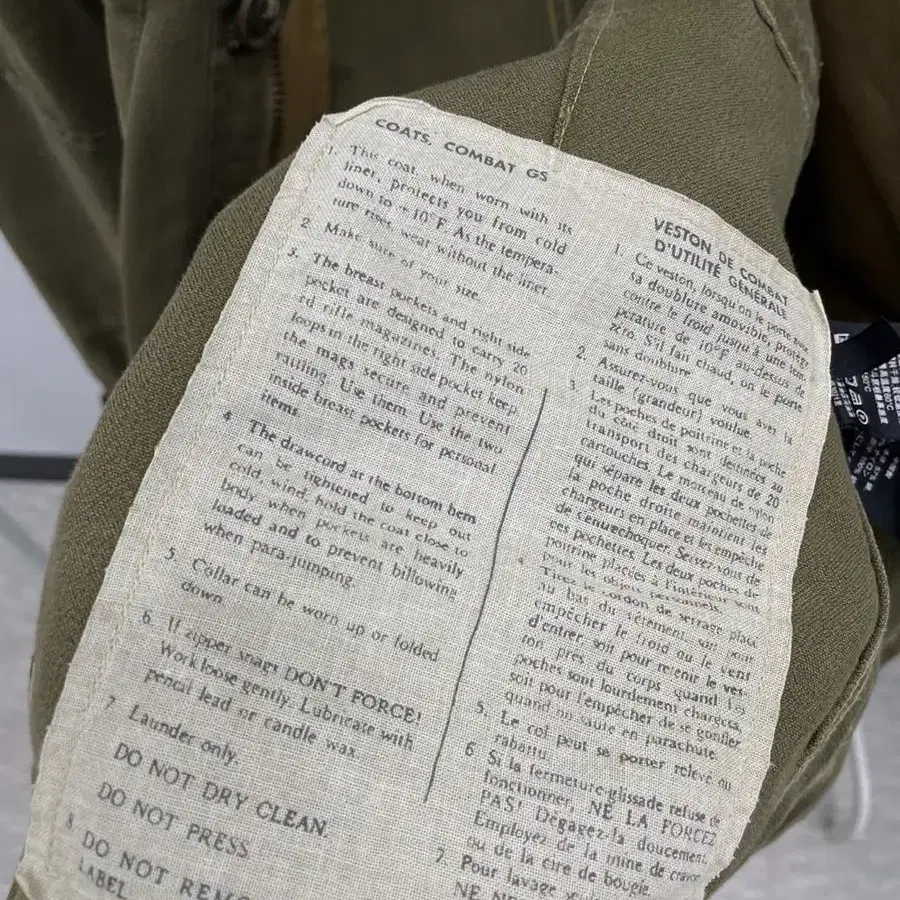 COATS, COMBAT GS
1. This coat, when worn with its
liner, protects you from cold
down to +10°F. As the tempera-
ture rises, wear without the liner.
2 Make sure of your size.
3. The breast pockets and right side
pocket are designed to carry 20
rd rifle magazines. The nylon
loops in the right side pocket keep
the mags secure and prevent
rattling. Use them. Use the two
inside breast pockets for personal
items.
4 The drawcord at the bottom hem
can be tightened to keep out
cold, wind, hold the coat close to
body when pockets are heavily
loaded and to prevent billowing
when para-jumping.
5. Collar can be worn up or folded
down.
6. If zipper snags DON'T FORCE!
Work loose gently. Lubricate with
pencil lead or candle wax.
7 Launder only.
DO NOT DRY CLEAN.
DO NOT PRESS
8 DO NOT REMO
LABEL
VESTON DE COMBAT
D'UTILITÉ GÉNÉRALE
1. Ce veston, lorsqu'on le porte avec
sa doublure amovible, protège
contre le froid jusqu'à une tem-
pérature de 10°F au-dessus de
zéro. S'il fait chaud, on le porte
sans doublure.
2. Assurez-vous que vous avez la
taille (grandeur) voulue.
3 Les poches de poitrine et la poche
du côté droit sont destinées au
transport des chargeurs de 20
cartouches. Le morceau de nylon
qui sépare les deux pochettes de
la poche droite maintient les
chargeurs en place et les empêche
de s'entrechoquer. Servez-vous de
ces pochettes. Les deux poches de
poitrine placées à l'intérieur sont
pour les objets personnels.
4 Tirez le cordon de serrage placé
au bas du vêtement, soit pour
empêcher le froid ou le vent
d'entrer soit pour retenir le ves-
ton près du corps quand les
poches sont lourdement chargées,
soit pour l'empêcher de se gonfler
quand on saute en parachute.
5. Le col peut se porter relevé ou
rabattu.
6 Si la fermeture-glissade refuse de
fonctionner, NE LA FORCEZ
PAS! Dégagez-la doucement.
Employez de la mine de crayon
ou de la cire de bougie.
7. Pour lavage
NE